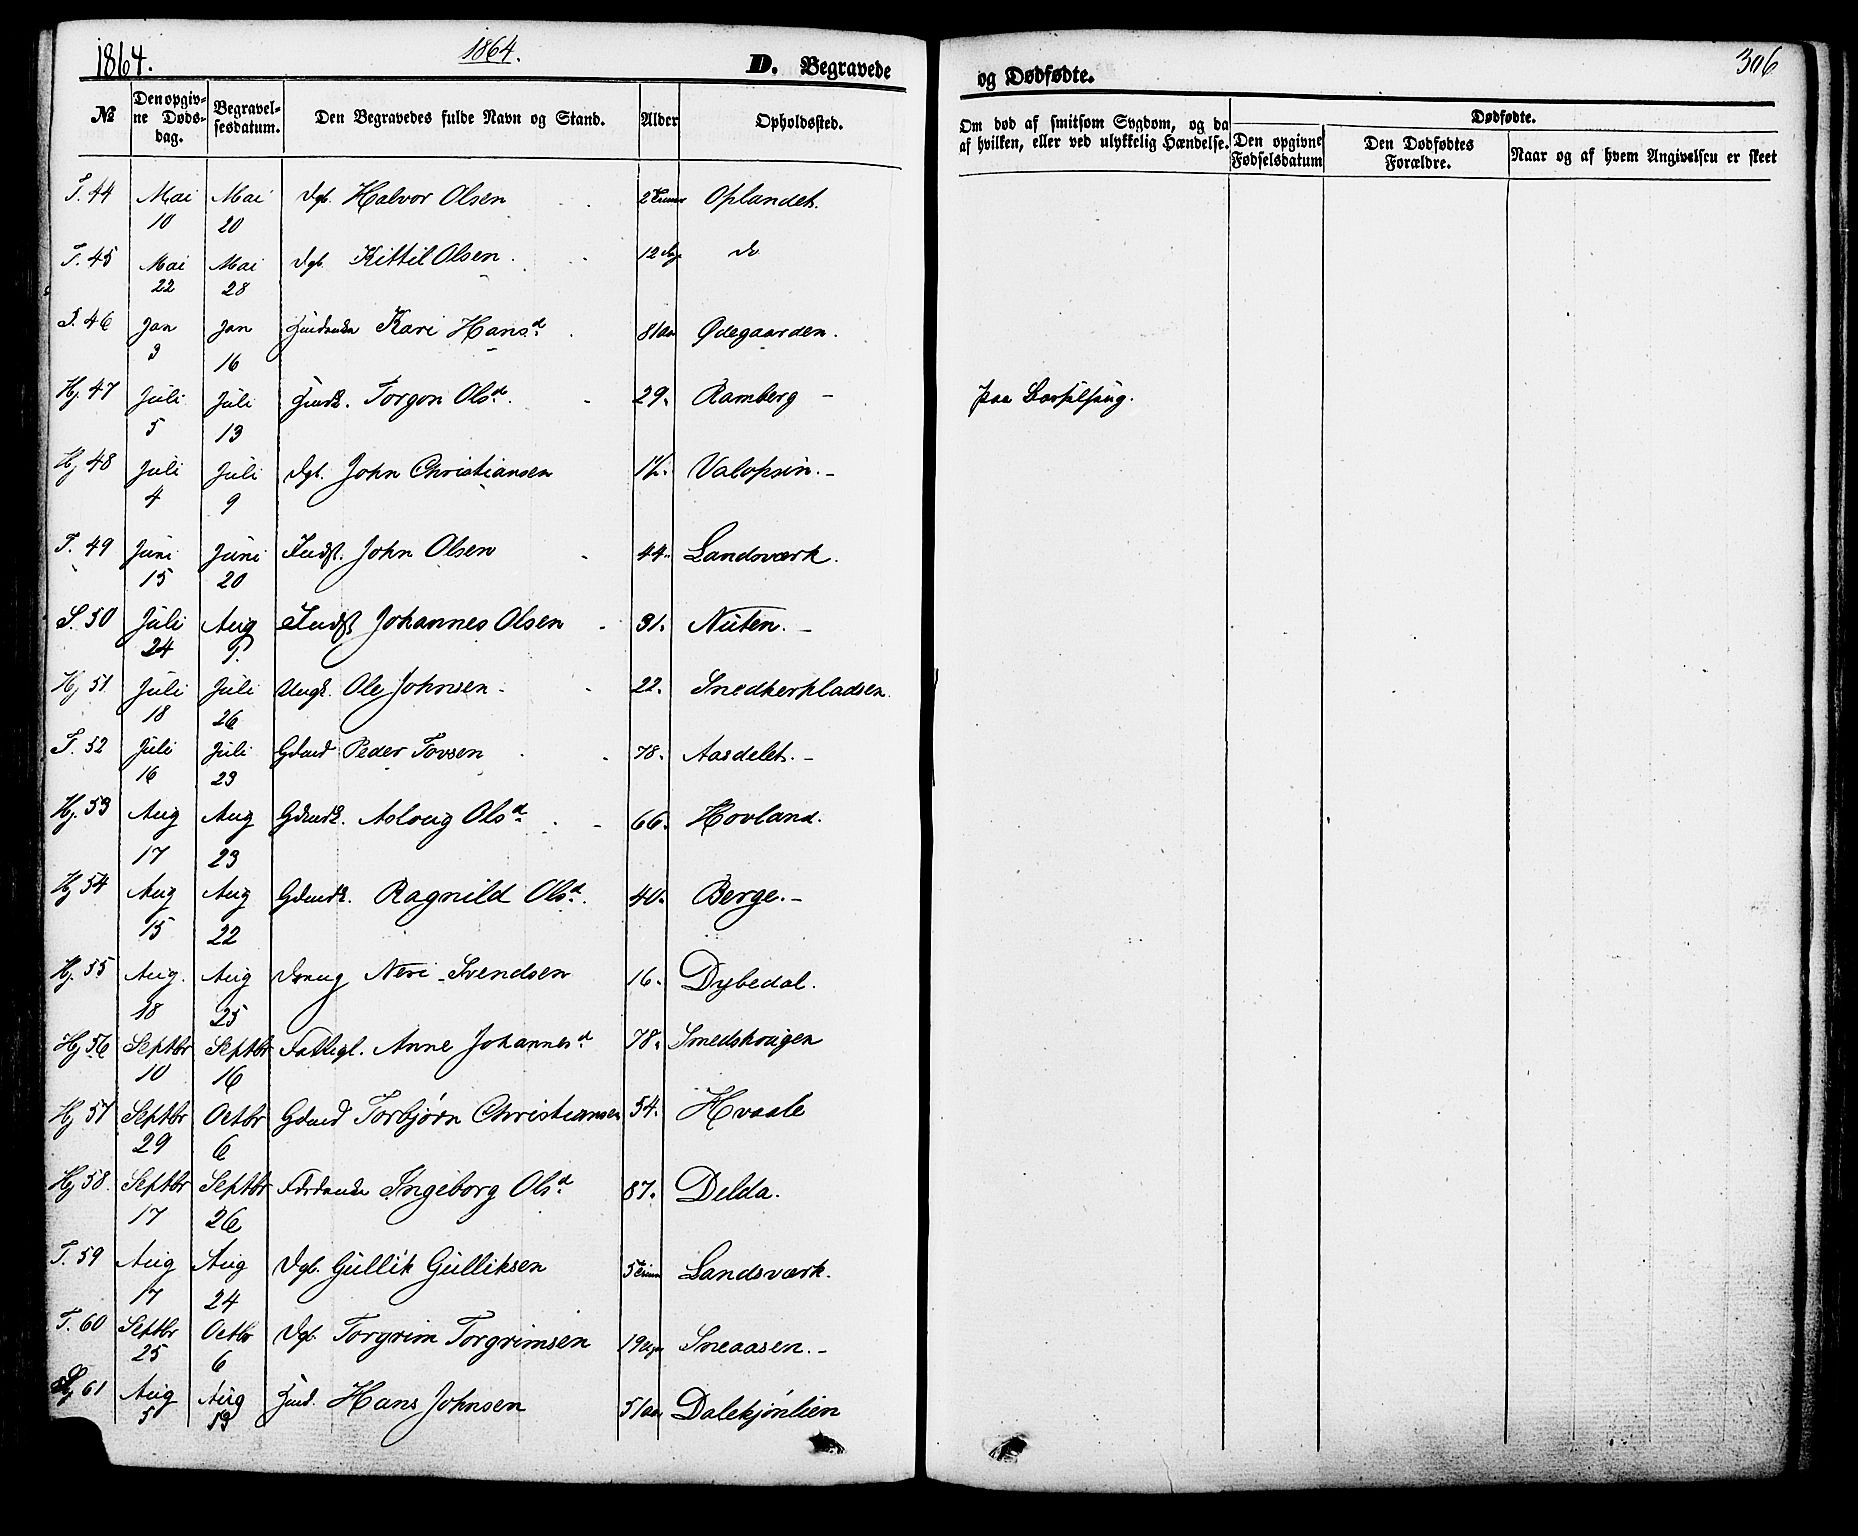 1864.
1864.
D. Begravede
og Dødfødte.
306
№
Den opgiv-
ne Døds-
dag.
Begravel-
sesdatum.
Den Begravedes fulde Navn og Stand.
Alder
Opholdssted.
Om død af smitsom Sygdom, og da
af hvilken, eller ved ulykkelig Hændelse.
Dødfødte.
Den opgivne
Fødselsdatum
Den Dødfødtes
Forældre.
Naar og af hvem Angivelsen er skeet
T. 44 Mai 10 Mai 20 Dgb. Halvor Olsen 2 Timer Oplandet.
T. 45 Mai 22 Mai 28 Dgb. Kittil Olsen 12 Dag do
T. 46 Jan 3 Jan 16 Kari Hansd. 81 Aar Ødegaarden.
Hj. 47 Juli 5 Juli 13 Torgon Olsd. 29. Ramberg paa Barselseng.
Hj 48 Juli 4 Juli 9 Dgb. John Christiansen Valopsin.
T. 49 Juni 15 Juni 20 Indst. John Olsen 44. Landsværk.
S. 50 Juli 24 Aug 9. Indst Johannes Olsen 31. Nuten.
Hj 51 Juli 18 Juli 26 Ungk. Ole Johnsen 22. Snedkerpladsen.
T. 52 Juli 16 Juli 23 Gdmd Peder Tovsen 78. Aasdelet.
Hj. 53 Aug 17 Aug 23 Gdmdk. Asloug Olsd. 66. Hovland.
Hj 54 Aug 15 Aug 22 Gdmdk. Ragnild Olsd. 40. Berge.
Hj. 55 Aug. 18 Aug 25 Dreng Neri Svendsen 16. Dybedal.
Hj 56 Septbr 10 Septbr 16 Fattigl. Anne Johannesd 78. Smedshougen
Hj 57 Septbr 29 Octbr 6 Gdmd Torbjørn Christiansen 54. Hvaale
Hj 58. Septbr 17 Septbr 26 Ingeborg Olsd. 87. Delda.
T. 59 Aug 17 Aug 24 Dgb. Gullik Gulliksen 5 Timer Landsværk.
T. 60 Septbr 25 Octbr 6 Dgb. Torgrim Torgrimsen Sneaasen.
61 Aug 5 Aug 13 Hans Johnsen 51 Aar Dalekjønlien